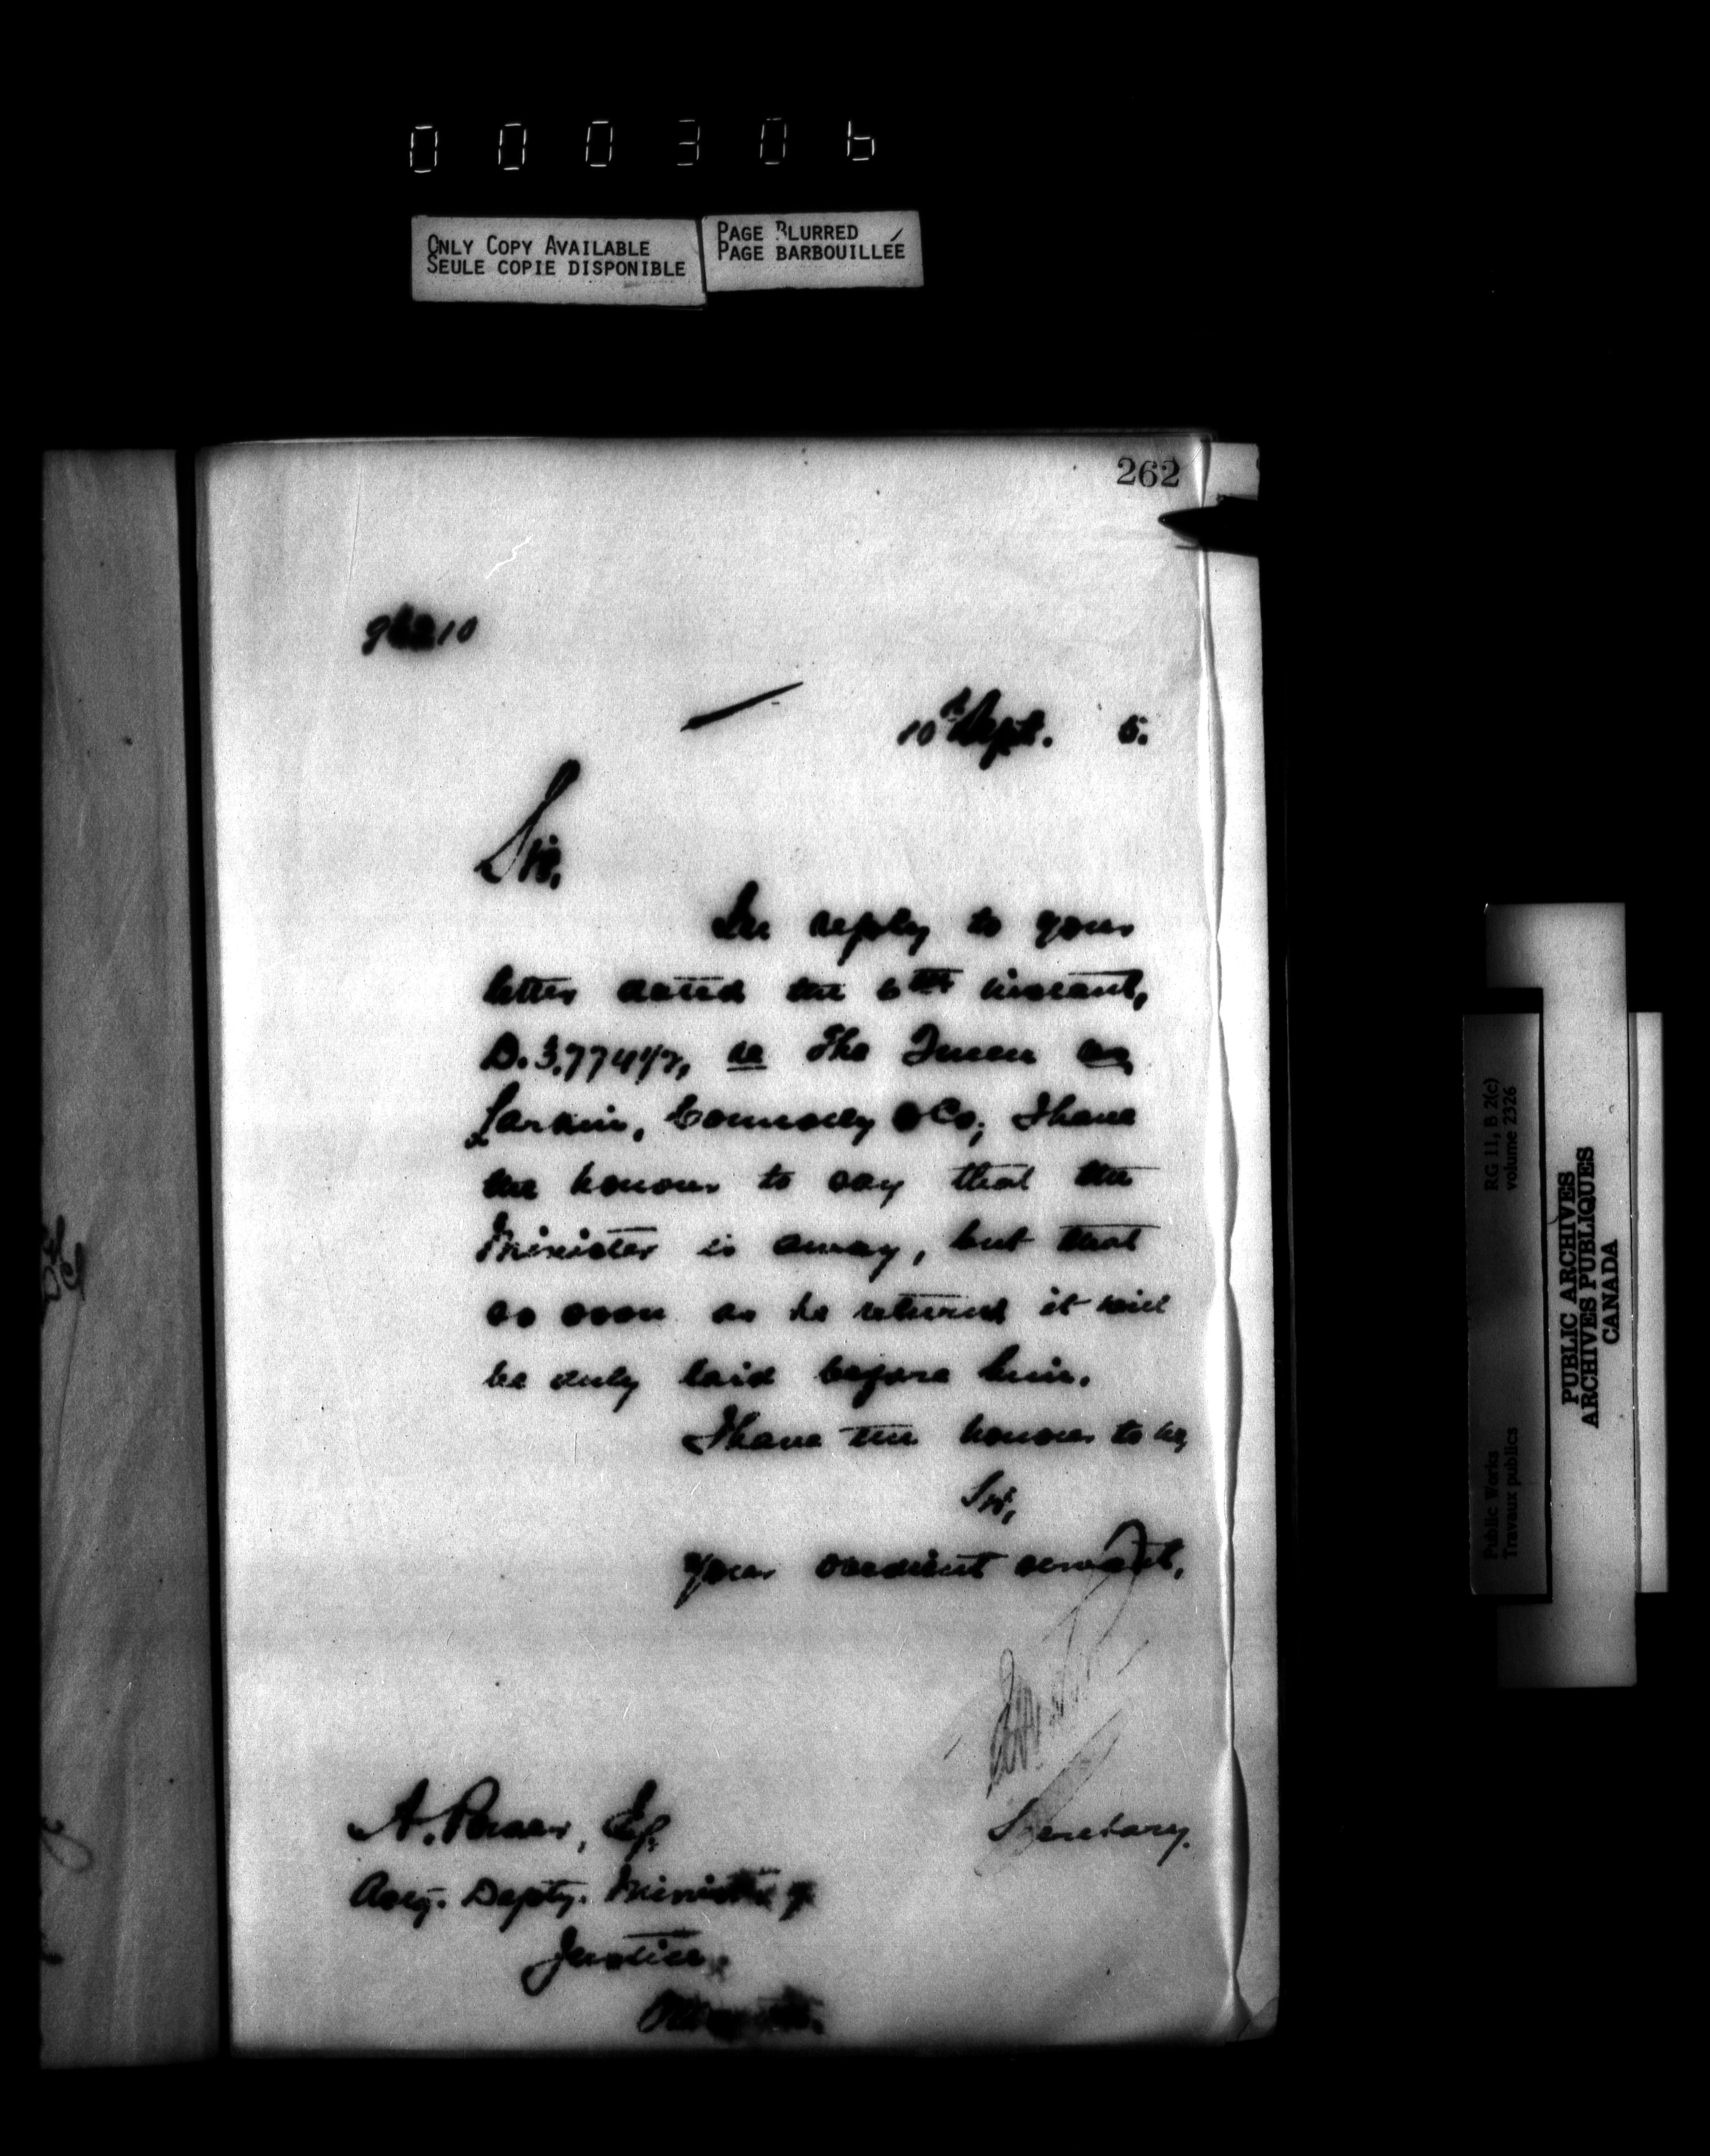 000306
ONLY COPY AVAILABLE
SEULE COPIE DISPONIBLE
PAGE BLURRED
PAGE BARBOUILLÉE
262
10th Sept. 5.
Sir,
In reply to your
letter dated the 6th instant,
D. 3,774 1/2, re The Queen vs
Larkin, Connolly & Co; I have
the honour to say that the
Minister is away, but that
as soon as he returns it will
be duly laid before him.
I have the honour to be,
Sir,
Your obedient servant,
Secretary.
A. Power, Esq.
Actg. Depty. Minister of
Justice,
Ottawa.
RG 11, B 2(c)
volume 2326
Public Works
Travaux publics
PUBLIC ARCHIVES
ARCHIVES PUBLIQUES
CANADA